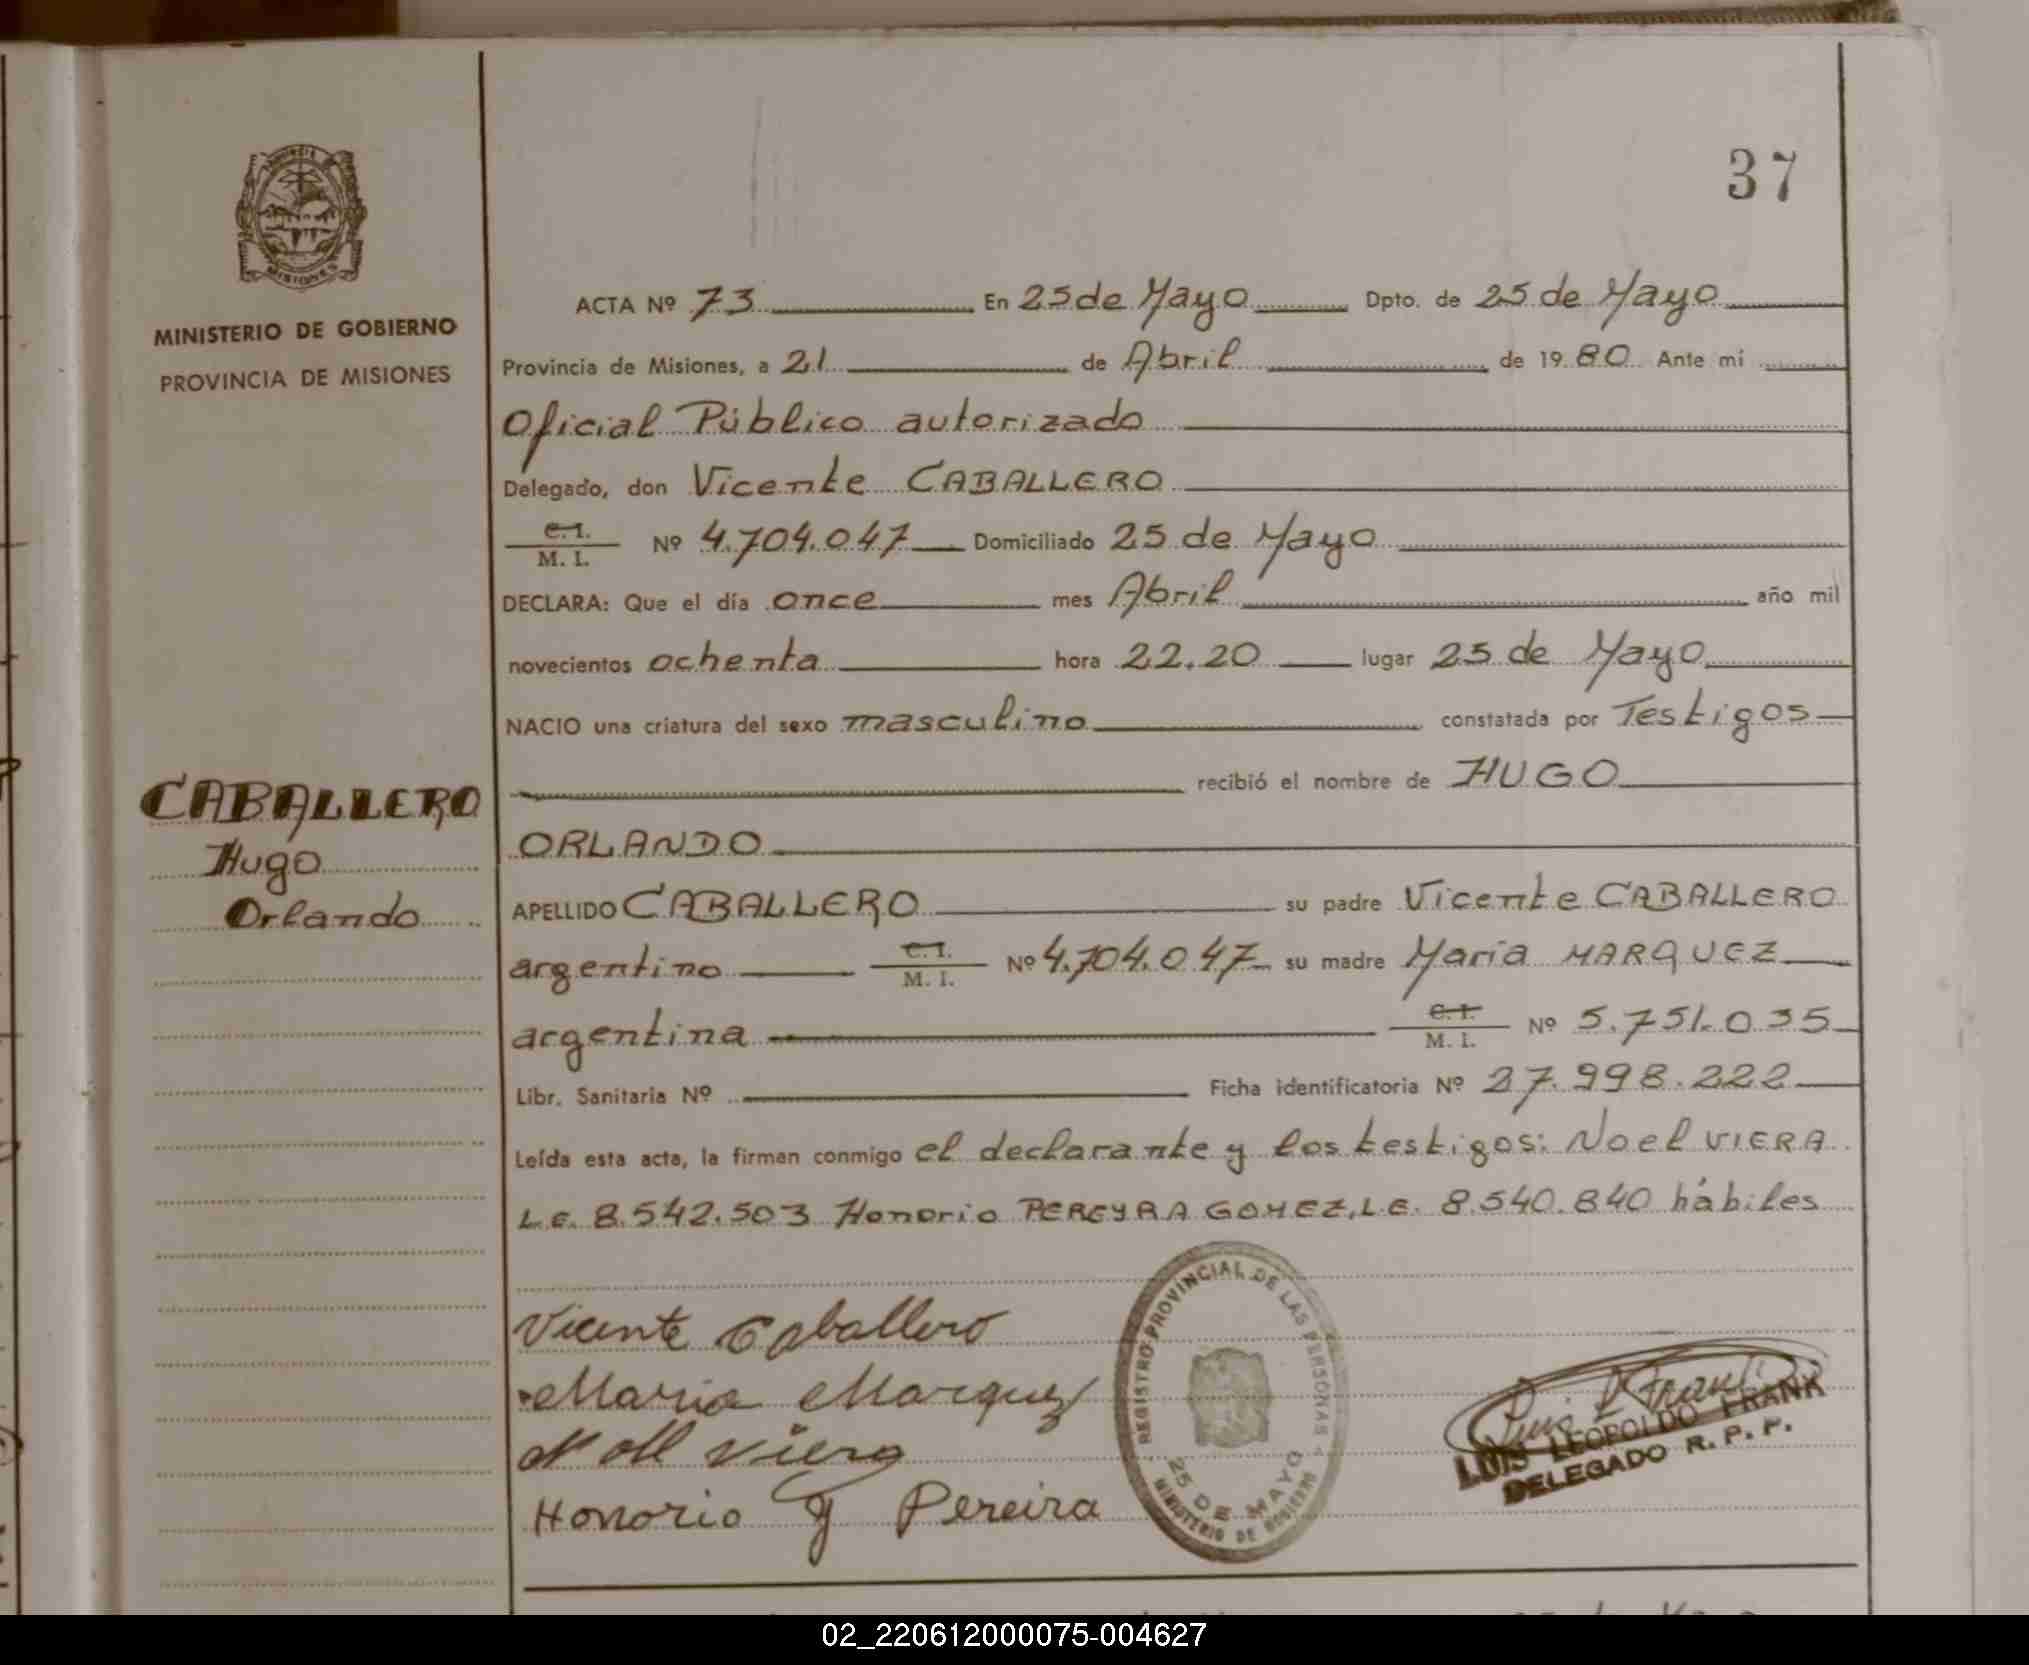 37
PROVINCIA
MISIONES
MINISTERIO DE GOBIERNO
PROVINCIA DE MISIONES
CABALLERO
Hugo
Orlando
ACTA Nº 73 En 25 de Mayo Dpto. de 25 de Mayo
Provincia de Misiones, a 21 de Abril de 1980 Ante mí
Oficial Público autorizado
Delegado, don Vicente CABALLERO
C. I.
M. I. Nº 4.704.047 Domiciliado 25 de Mayo
DECLARA: Que el día once mes Abril año mil
novecientos ochenta hora 22.20 lugar 25 de Mayo
NACIO una criatura del sexo masculino constatada por Testigos
recibió el nombre de HUGO
ORLANDO
APELLIDO CABALLERO su padre Vicente CABALLERO
argentino C. I. M. I. Nº 4.704.047 su madre María MARQUEZ
argentina C. I. M. I. Nº 5.751.035
Libr. Sanitaria Nº Ficha identificatoria Nº 27.998.222
Leída esta acta, la firman conmigo el declarante y los testigos: Noel VIERA
L.E. 8.542.503 Honorio PEREYRA GOMEZ, L.E. 8.540.840 hábiles
Vicente Caballero
Maria Marquez
Viera
Honorio G Pereira
REGISTRO PROVINCIAL DE LAS PERSONAS
25 DE MAYO
MINISTERIO DE GOBIERNO
LUIS LEOPOLDO FRANK
DELEGADO R. P. P.
02_220612000075-004627